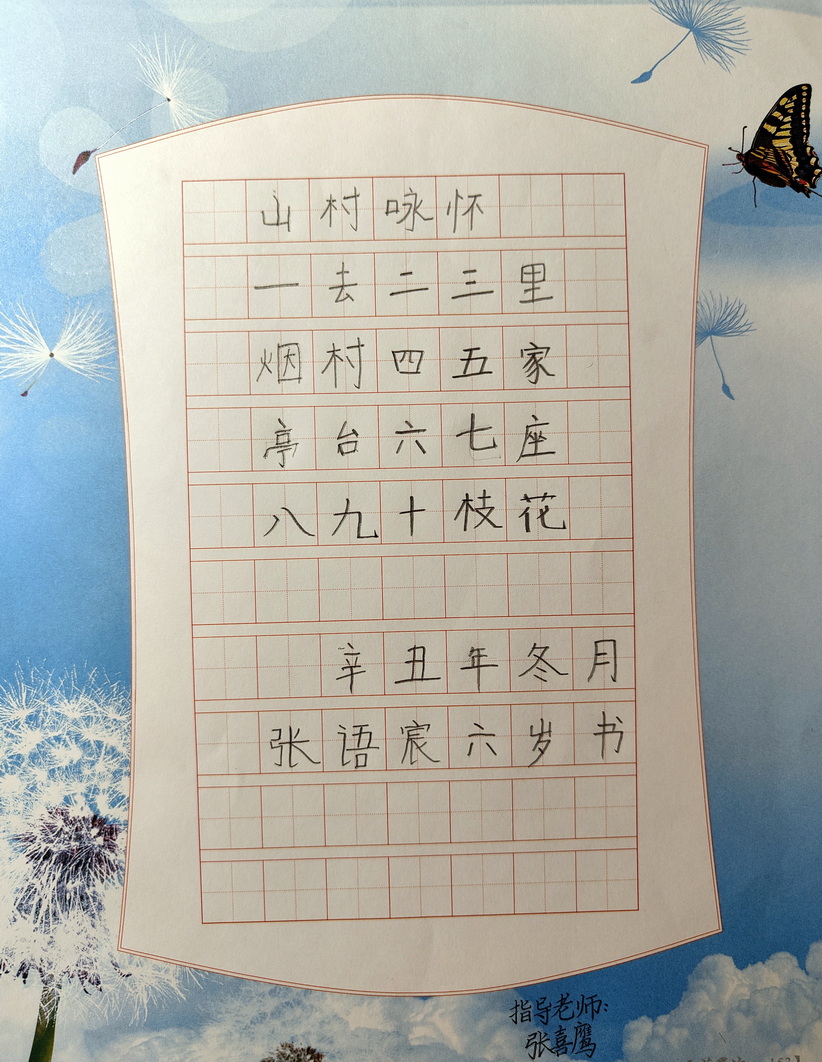 山村咏怀
一去二三里
烟村四五家
亭台六七座
八九十枝花
辛丑年冬月
张语宸六岁书
指导老师:
张喜鹰